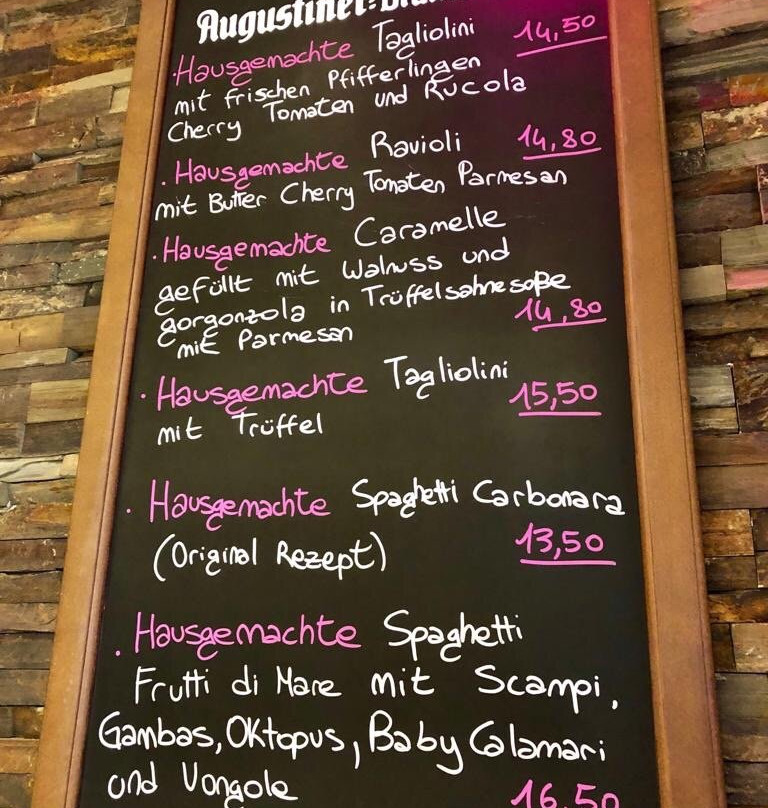 Augustiner
Hausgemachte Tagliolini 14,50
mit frischen Pfifferlingen
Cherry Tomaten und Rucola
. Hausgemachte Ravioli 14,80
mit Butter Cherry Tomaten Parmesan
. Hausgemachte Caramelle
gefüllt mit Walnuss und
gorgonzola in Trüffelsahnesoße
mit Parmesan 14,80
. Hausgemachte Tagliolini
mit Trüffel 15,50
. Hausgemachte Spaghetti Carbonara
(Original Rezept) 13,50
. Hausgemachte Spaghetti
Frutti di Mare mit Scampi,
Gambas, Oktopus, Baby Calamari
und Vongole 16,50